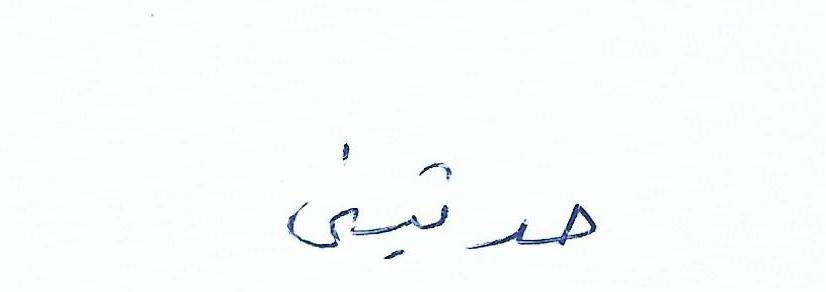 حدثيني